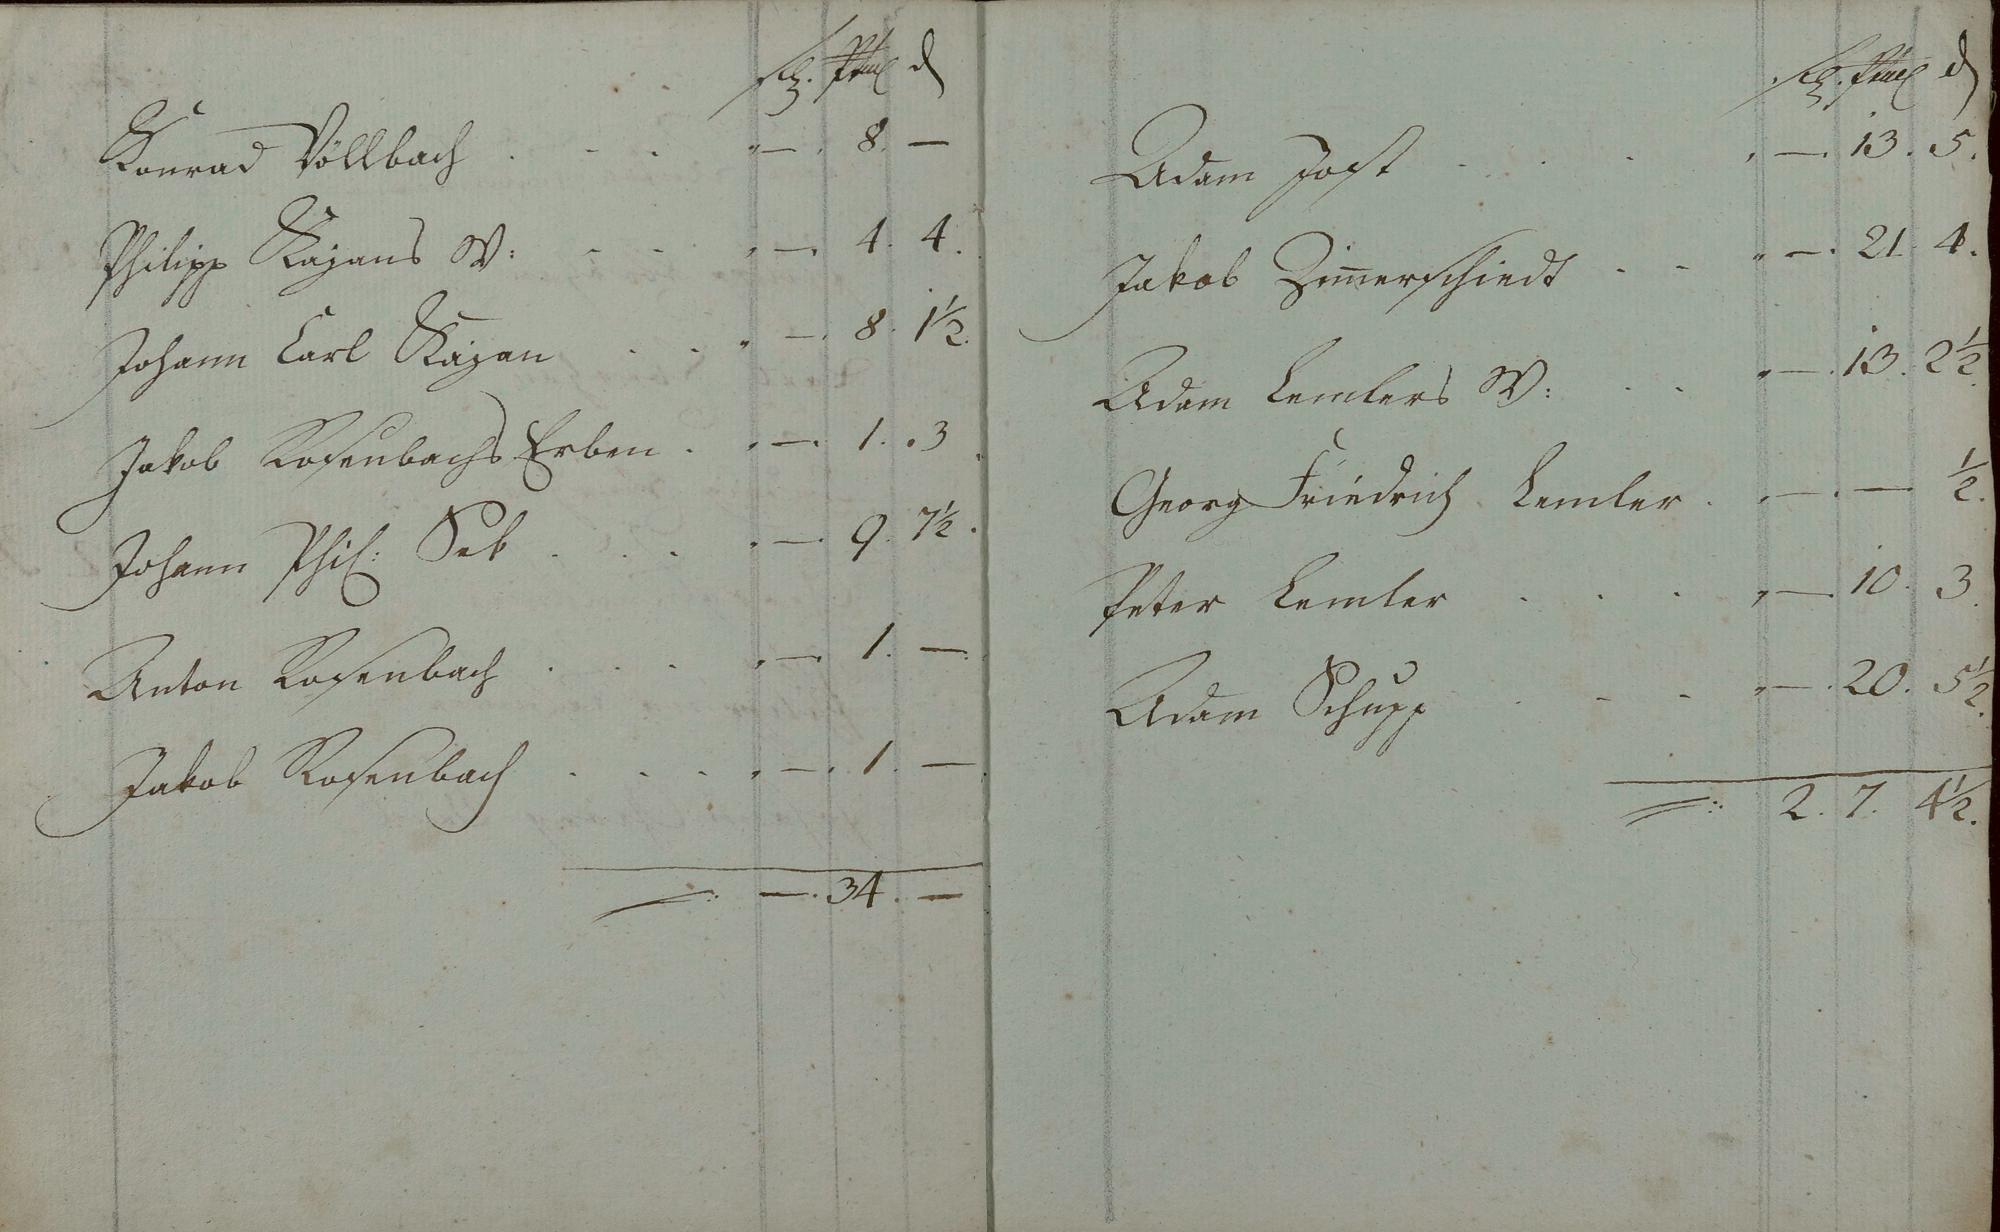 d
Konrad Völlbach . . . — . 8 . —
Philipp Kazans W: . . . — . 4 . 4 .
Johann Carl Kazan . . . — . 8 . 1½ .
Jakob Rosenbachs Erben . . — . 1 . 3
Johann Phil: Seb . . . — . 9 . 7½ .
Anton Rosenbach . . . — . 1 . —
Jakob Rosenbach . . . — . 1 . —
— . 34 . —
d
Adam Jost . . . — . 13 . 5 .
Jakob Zimerschiedt . . — . 21 . 4 .
Adam Lemlers W: . . — . 13 . 2½
Georg Friedrich Lemler . — . — ½ .
Peter Lemler . . . — . 10 . 3
Adam Schupp . . . — . 20 . 5½ .
2 . 7 . 4½ .